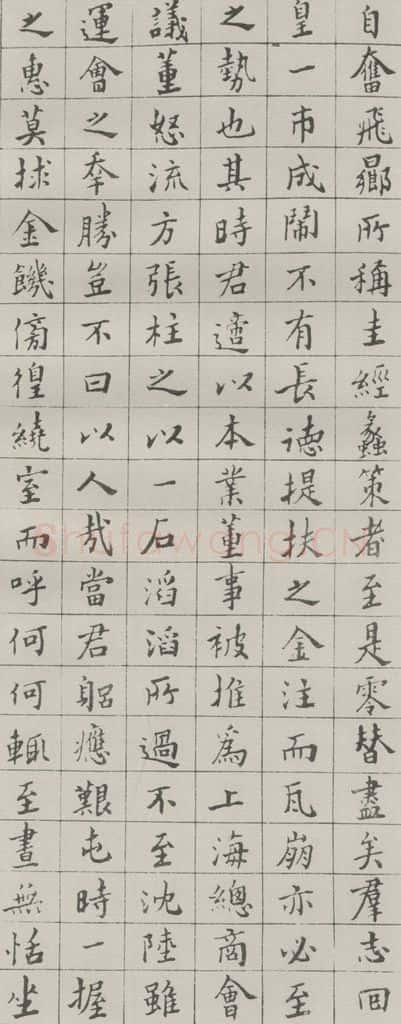 自奮飛鄉所稱圭經蠡策者至是零替盡矣羣志回
皇一市成鬧不有長德提扶之金注而瓦崩亦必至
之勢也其時君適以本業董事被推爲上海總商會
議董怒流方張柱之以一石滔滔所過不至沈陸雖
運會之季勝豈不曰以人哉當君躳應艱屯時一握
之惠莫捄金饑傍徨繞室而呼何何輒至晝無恬坐
Shufawang.CN